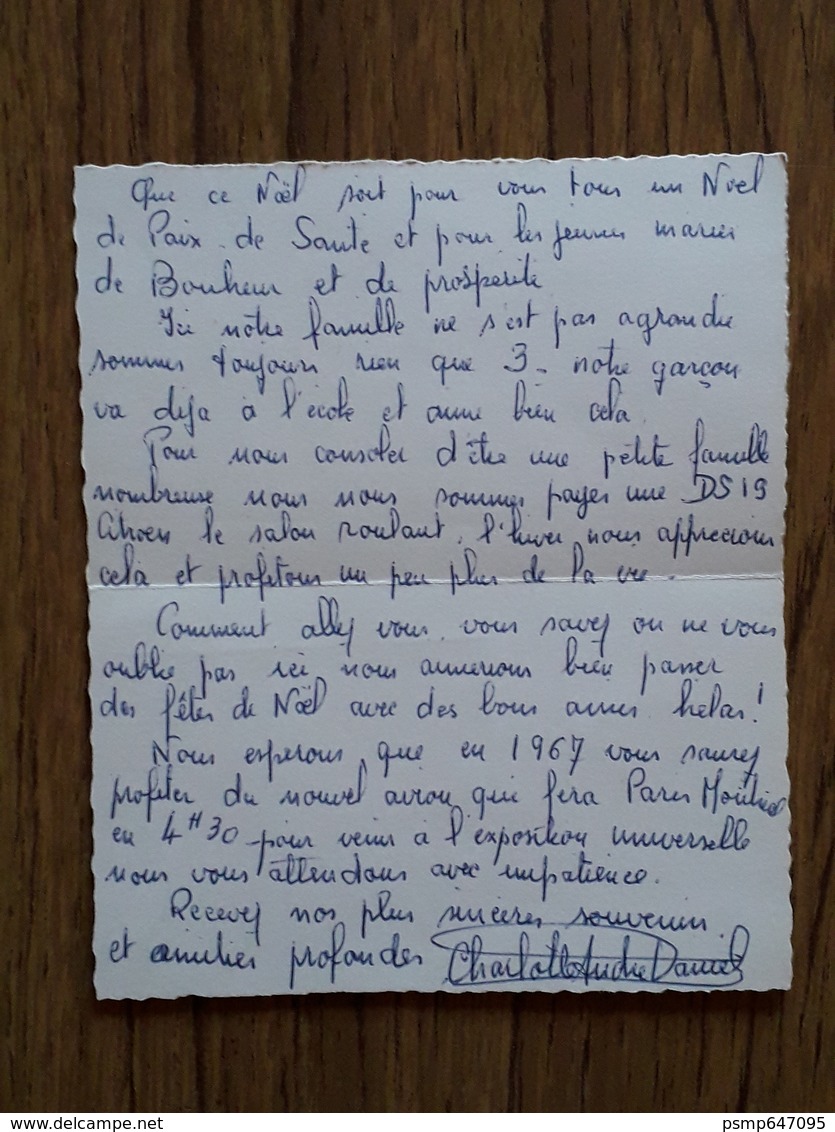 Que ce Noël soit pour vous tous un Noel
de Paix. de Sante et pour les jeunes mariés
de Bonheur et de prosperite
Ici notre famille ne s'est pas agrandie
sommes toujours rien que 3. notre garçon
va deja à l'école et aime bien cela.
Pour nous consoler d'être une petite famille
nombreuse nous nous sommes payes une DS19
Citroen le salon roulant. l'hiver nous apprecions
cela et profitons un peu plus de la vie.
Comment allez vous. vous savez on ne vous
oublie pas ici nous aimerions bien passer
des fêtes de Noël avec des bons amis helas!
Nous esperons que en 1967 vous saurez
profiter du nouvel avion qui fera Paris Montreal
en 4H30 pour venir à l'exposition universelle
nous vous attendons avec impatience.
Recevez nos plus sincères souvenirs.
et amitiés profondes Charlotte Andre Daniel
delcampe.net
psmp647095